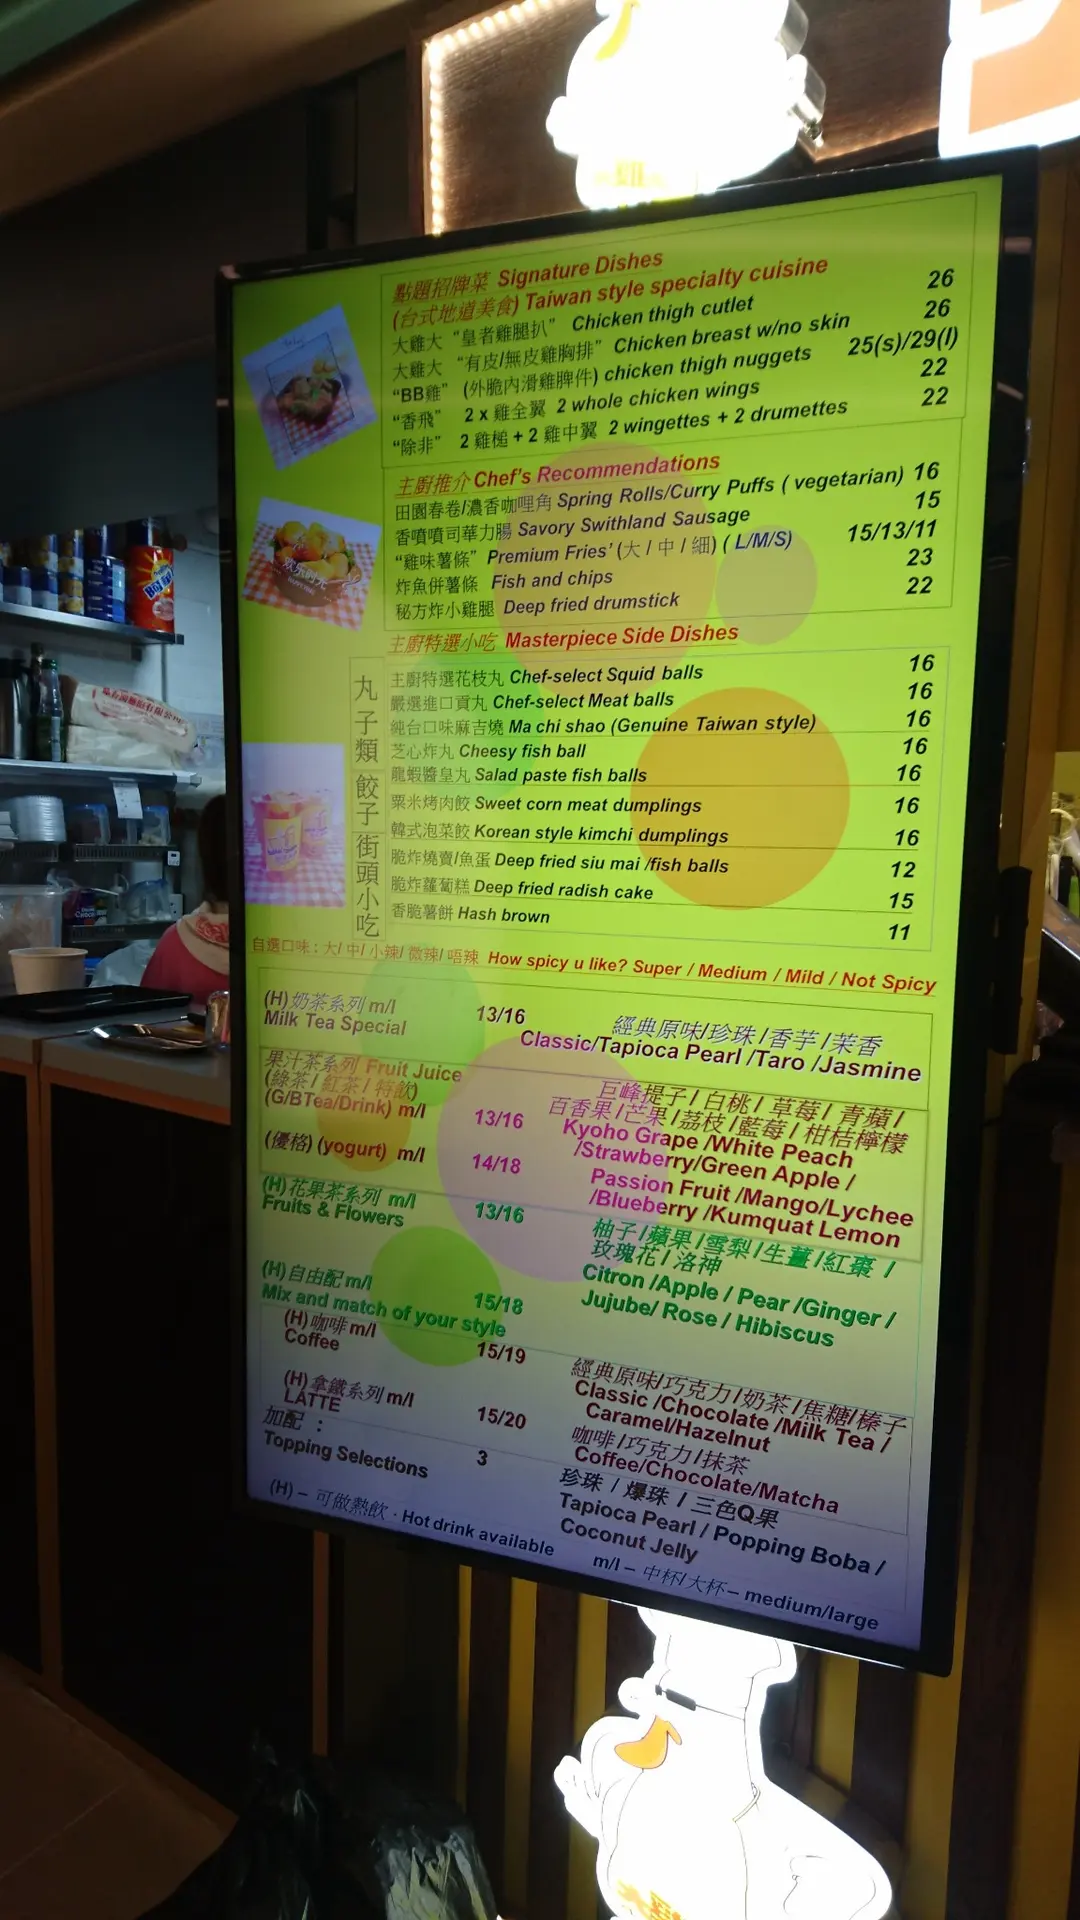 點題招牌菜 Signature Dishes
(台式地道美食) Taiwan style specialty cuisine
大雞大 “皇者雞腿扒” Chicken thigh cutlet 26
大雞大 “有皮/無皮雞胸排” Chicken breast w/no skin 26
“BB雞” (外脆內滑雞脾件) chicken thigh nuggets 25(s)/29(l)
“香飛” 2 x 雞全翼 2 whole chicken wings 22
“除非” 2 雞槌 + 2 雞中翼 2 wingettes + 2 drumettes 22
主廚推介 Chef's Recommendations
田園春卷/濃香咖哩角 Spring Rolls/Curry Puffs ( vegetarian) 16
香噴噴司華力腸 Savory Swithland Sausage 15
“雞味薯條” Premium Fries' (大 / 中 / 細) ( L/M/S) 15/13/11
炸魚併薯條 Fish and chips 23
秘方炸小雞腿 Deep fried drumstick 22
主廚特選小吃 Masterpiece Side Dishes
丸子類 餃子 街頭小吃
主廚特選花枝丸 Chef-select Squid balls 16
嚴選進口貢丸 Chef-select Meat balls 16
純台口味麻吉燒 Ma chi shao (Genuine Taiwan style) 16
芝心炸丸 Cheesy fish ball 16
龍蝦醬皇丸 Salad paste fish balls 16
粟米烤肉餃 Sweet corn meat dumplings 16
韓式泡菜餃 Korean style kimchi dumplings 16
脆炸燒賣/魚蛋 Deep fried siu mai /fish balls 12
脆炸蘿蔔糕 Deep fried radish cake 15
香脆薯餅 Hash brown 11
自選口味 : 大/ 中/ 小辣/ 微辣/ 唔辣 How spicy u like? Super / Medium / Mild / Not Spicy
(H)奶茶系列 m/l 13/16 經典原味/珍珠 /香芋 /茉香
Milk Tea Special Classic/Tapioca Pearl /Taro /Jasmine
果汁茶系列 Fruit Juice
(綠茶 / 紅茶 / 特飲)
(G/BTea/Drink) m/l 13/16
(優格) (yogurt) m/l 14/18
巨峰提子 / 白桃 / 草莓 / 青蘋 /
百香果 /芒果 /荔枝 /藍莓 / 柑桔檸檬
Kyoho Grape /White Peach
/Strawberry/Green Apple /
Passion Fruit /Mango/Lychee
/Blueberry /Kumquat Lemon
(H)花果茶系列 m/l 13/16
Fruits & Flowers
柚子 /蘋果 /雪梨 /生薑 /紅棗 /
玫瑰花 / 洛神
Citron /Apple / Pear /Ginger /
Jujube/ Rose / Hibiscus
(H)自由配 m/l 15/18
Mix and match of your style
(H)咖啡 m/l 15/19
Coffee
經典原味/巧克力 /奶茶 /焦糖/榛子
Classic /Chocolate /Milk Tea /
Caramel/Hazelnut
(H)拿鐵系列 m/l 15/20
LATTE
咖啡 /巧克力 /抹茶
Coffee/Chocolate/Matcha
加配 :
Topping Selections 3
珍珠 / 爆珠 / 三色Q果
Tapioca Pearl / Popping Boba /
Coconut Jelly
(H) – 可做熱飲 · Hot drink available
m/l – 中杯/ 大杯– medium/large